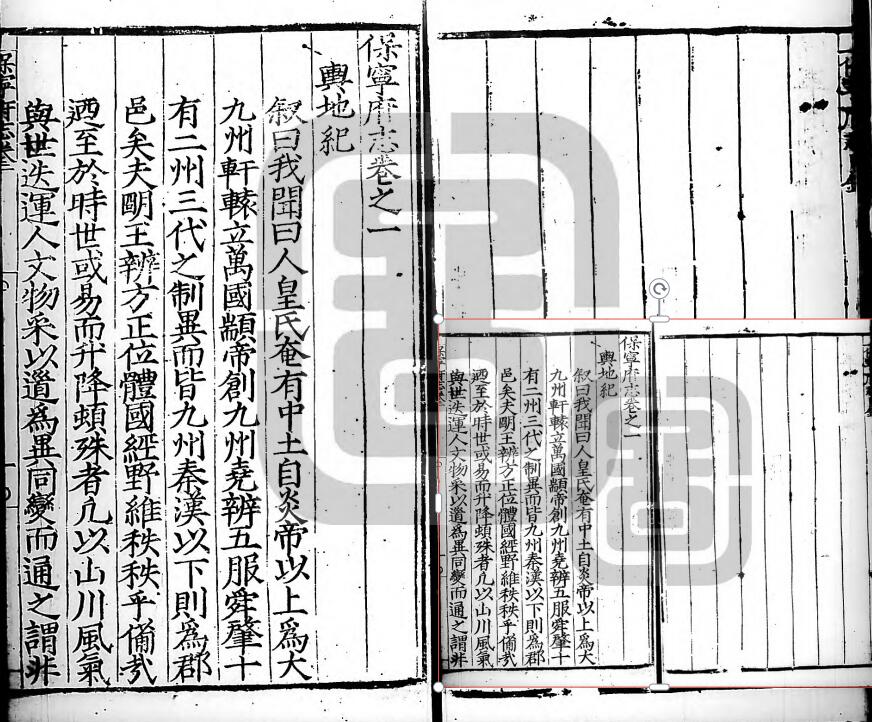 保寧府志卷之一
輿地紀
叙曰我聞曰人皇氏奄有中土自炎帝以上爲大
九州軒轅立萬國顓帝創九州堯辨五服舜肇十
有二州三代之制異而皆九州秦漢以下則爲郡
邑矣夫明王辨方正位體國經野維秩秩乎備哉
迺至於時世或易而升降頓殊者凡以山川風氣
與世迭運人文物采以遒爲異同變而通之謂非
保寧府志卷
保寧府志卷之一
輿地紀
叙曰我聞曰人皇氏奄有中土自炎帝以上爲大
九州軒轅立萬國顓帝創九州堯辨五服舜肇十
有二州三代之制異而皆九州秦漢以下則爲郡
邑矣夫明王辨方正位體國經野維秩秩乎備哉
迺至於時世或易而升降頓殊者凡以山川風氣
與世迭運人文物采以遒爲異同變而通之謂非